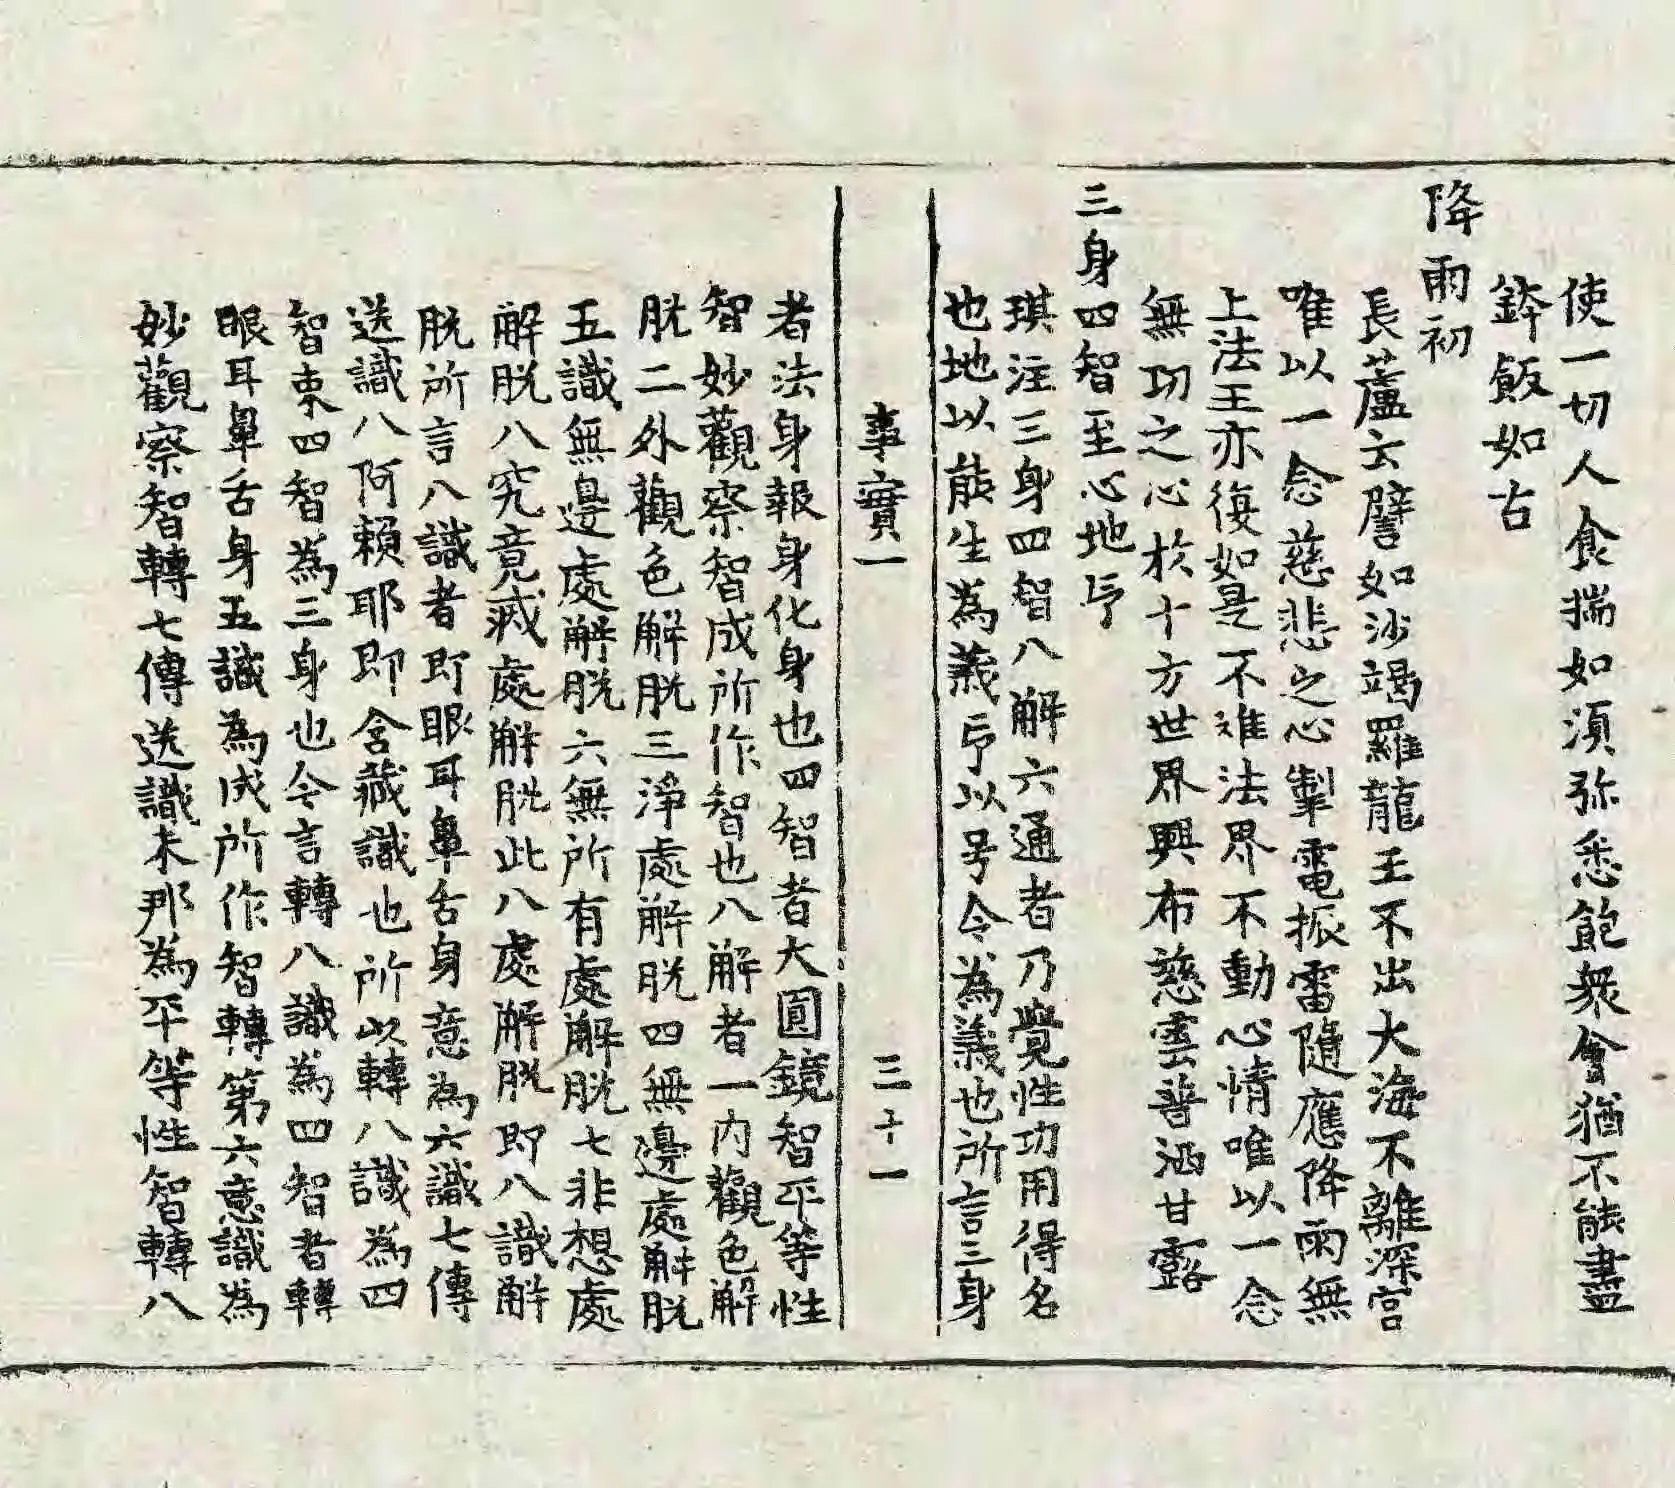 使一切人食揣如須弥悉飽衆會猶不能盡
鉢飯如古
降雨初
長蘆云譬如沙竭羅龍王不出大海不離深宮
唯以一念慈悲之心掣電振雷隨應降雨無
上法王亦復如是不離法界不動心情唯以一念
無功之心於十方世界興布慈雲普洒甘露
三身四智至心地印
琪注三身四智八解六通者乃覺性功用得名
也地以能生為義印以号令為義也所言三身
事實一 三十一
者法身報身化身也四智者大圓鏡智平等性
智妙觀察智成所作智也八解者一内觀色解
脱二外觀色解脱三淨處解脱四無邊處解脱
五識無邊處解脱六無所有處解脱七非想處
解脱八究竟滅處解脱此八處解脱即八識解
脱所言八識者即眼耳鼻舌身意為六識七傳
送識八阿賴耶即含藏識也所以轉八識為四
智束四智為三身也今言轉八識為四智者轉
眼耳鼻舌身五識為成所作智轉第六意識為
妙觀察智轉七傳送識末那為平等性智轉八